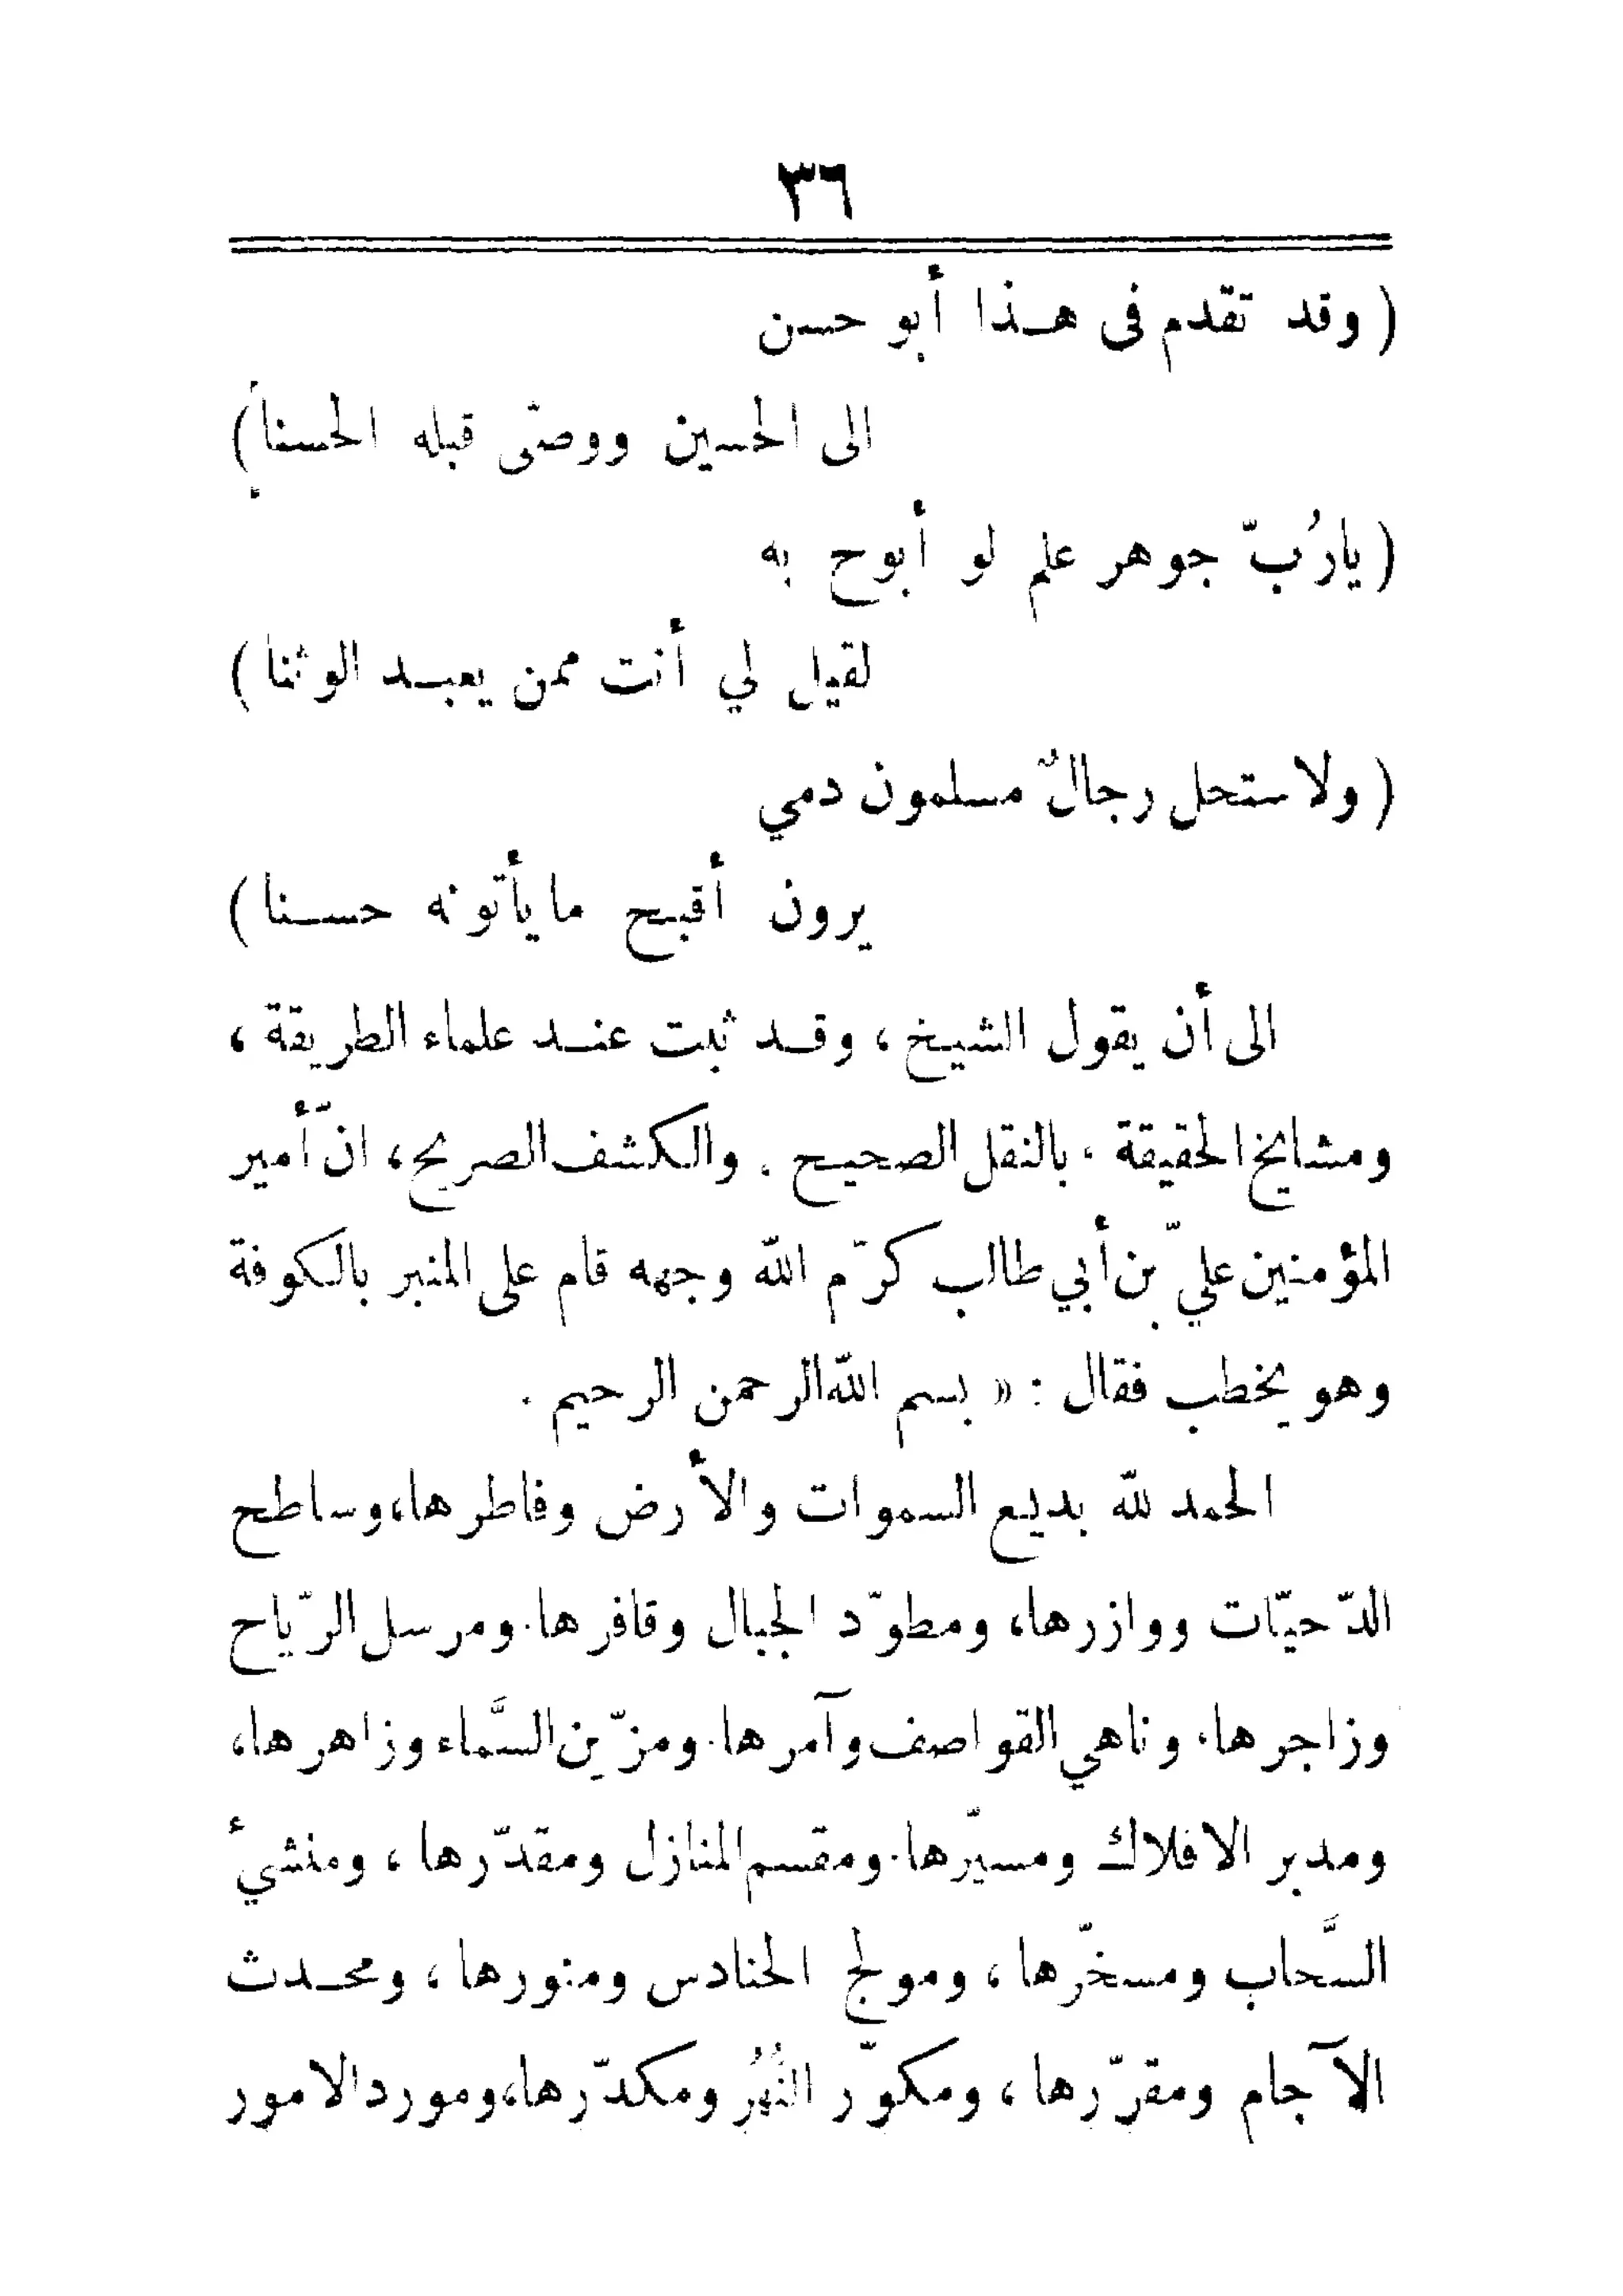 ٣٦
( وقد تقدم فى هـذا أبو حسن
الى الحسين ووصّى قبله الحسنا)
( يارُبّ جوهر علم لو أبوح به
لقيل لي أنت ممن يعبـد الوثنا )
( ولاستحل رجالٌ مسلمون دمي
يرون أقبح مايأتونه حسـنا )
الى أن يقول الشيخ ، وقـد ثبت عنـد علماء الطريقة ،
ومشايخ الحقيقة . بالنقل الصحيح . والكشف الصريح ، انّ أمير
المؤمنين عليّ بن أبي طالب كرّم الله وجهه قام على المنبر بالكوفة
وهو يخطب فقال : « بسم الله الرحمن الرحيم .
الحمد لله بديع السموات والأرض وفاطرها، وساطح
الدّحيّات ووازرها، ومطوّد الجبال وقافرها. ومرسل الرّياح
وزاجرها، وناهي القواصف وآمرها. ومزّين السَّماء وزاهرها،
ومدبر الافلاك ومسيّرها. ومقسم المنازل ومقدّرها ، ومنشئ
السَّحاب ومسخّرها ، ومولج الحنادس ومنورها ، ومحـدث
الآجام ومقرّرها ، ومكوّر النُهُر ومكدّرها، ومورد الامور